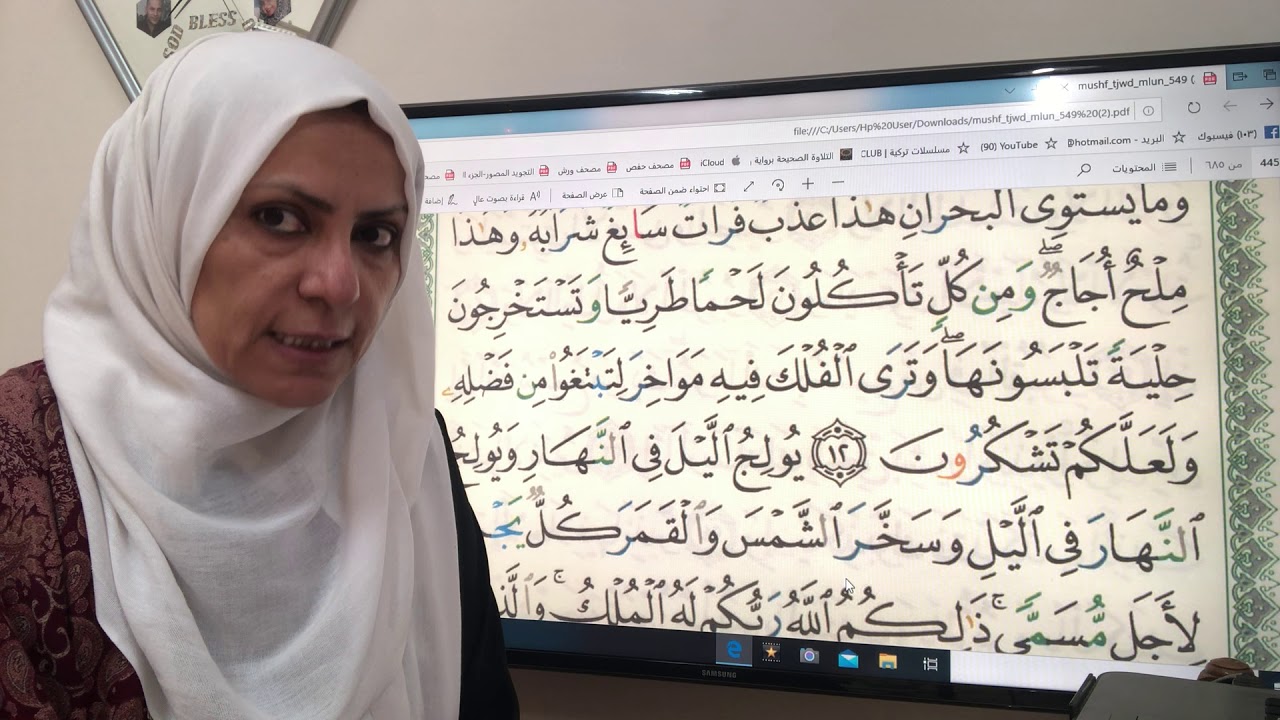 GOD BLESS
mushf_tjwd_mlun_549 (
file:///C:/Users/Hp%20User/Downloads/mushf_tjwd_mlun_549%20(2).pdf
(١٠٣) فيسبوك
البريد - hotmail.com
YouTube (90)
مسلسلات تركية | CLUB
التلاوة الصحيحة برواية
iCloud
مصحف حفص
مصحف ورش
التجويد المصور-الجزء اا
مصحف
445
من ٦٨٥
المحتويات
احتواء ضمن الصفحة
عرض الصفحة
قراءة بصوت عالٍ
إضافة
وَمَا يَسْتَوِى ٱلْبَحْرَانِ هَٰذَا عَذْبٌ فُرَاتٌ سَآئِغٌ شَرَابُهُۥ وَهَٰذَا
مِلْحٌ أُجَاجٌ ۖ وَمِن كُلٍّ تَأْكُلُونَ لَحْمًا طَرِيًّا وَتَسْتَخْرِجُونَ
حِلْيَةً تَلْبَسُونَهَا ۖ وَتَرَى ٱلْفُلْكَ فِيهِ مَوَاخِرَ لِتَبْتَغُوا۟ مِن فَضْلِهِۦ
وَلَعَلَّكُمْ تَشْكُرُونَ ١٢ يُولِجُ ٱلَّيْلَ فِى ٱلنَّهَارِ وَيُولِجُ
ٱلنَّهَارَ فِى ٱلَّيْلِ وَسَخَّرَ ٱلشَّمْسَ وَٱلْقَمَرَ كُلٌّ يَجْ
لِأَجَلٍ مُّسَمًّى ۚ ذَٰلِكُمُ ٱللَّهُ رَبُّكُمْ لَهُ ٱلْمُلْكُ ۚ وَٱلَّذ
SAMSUNG